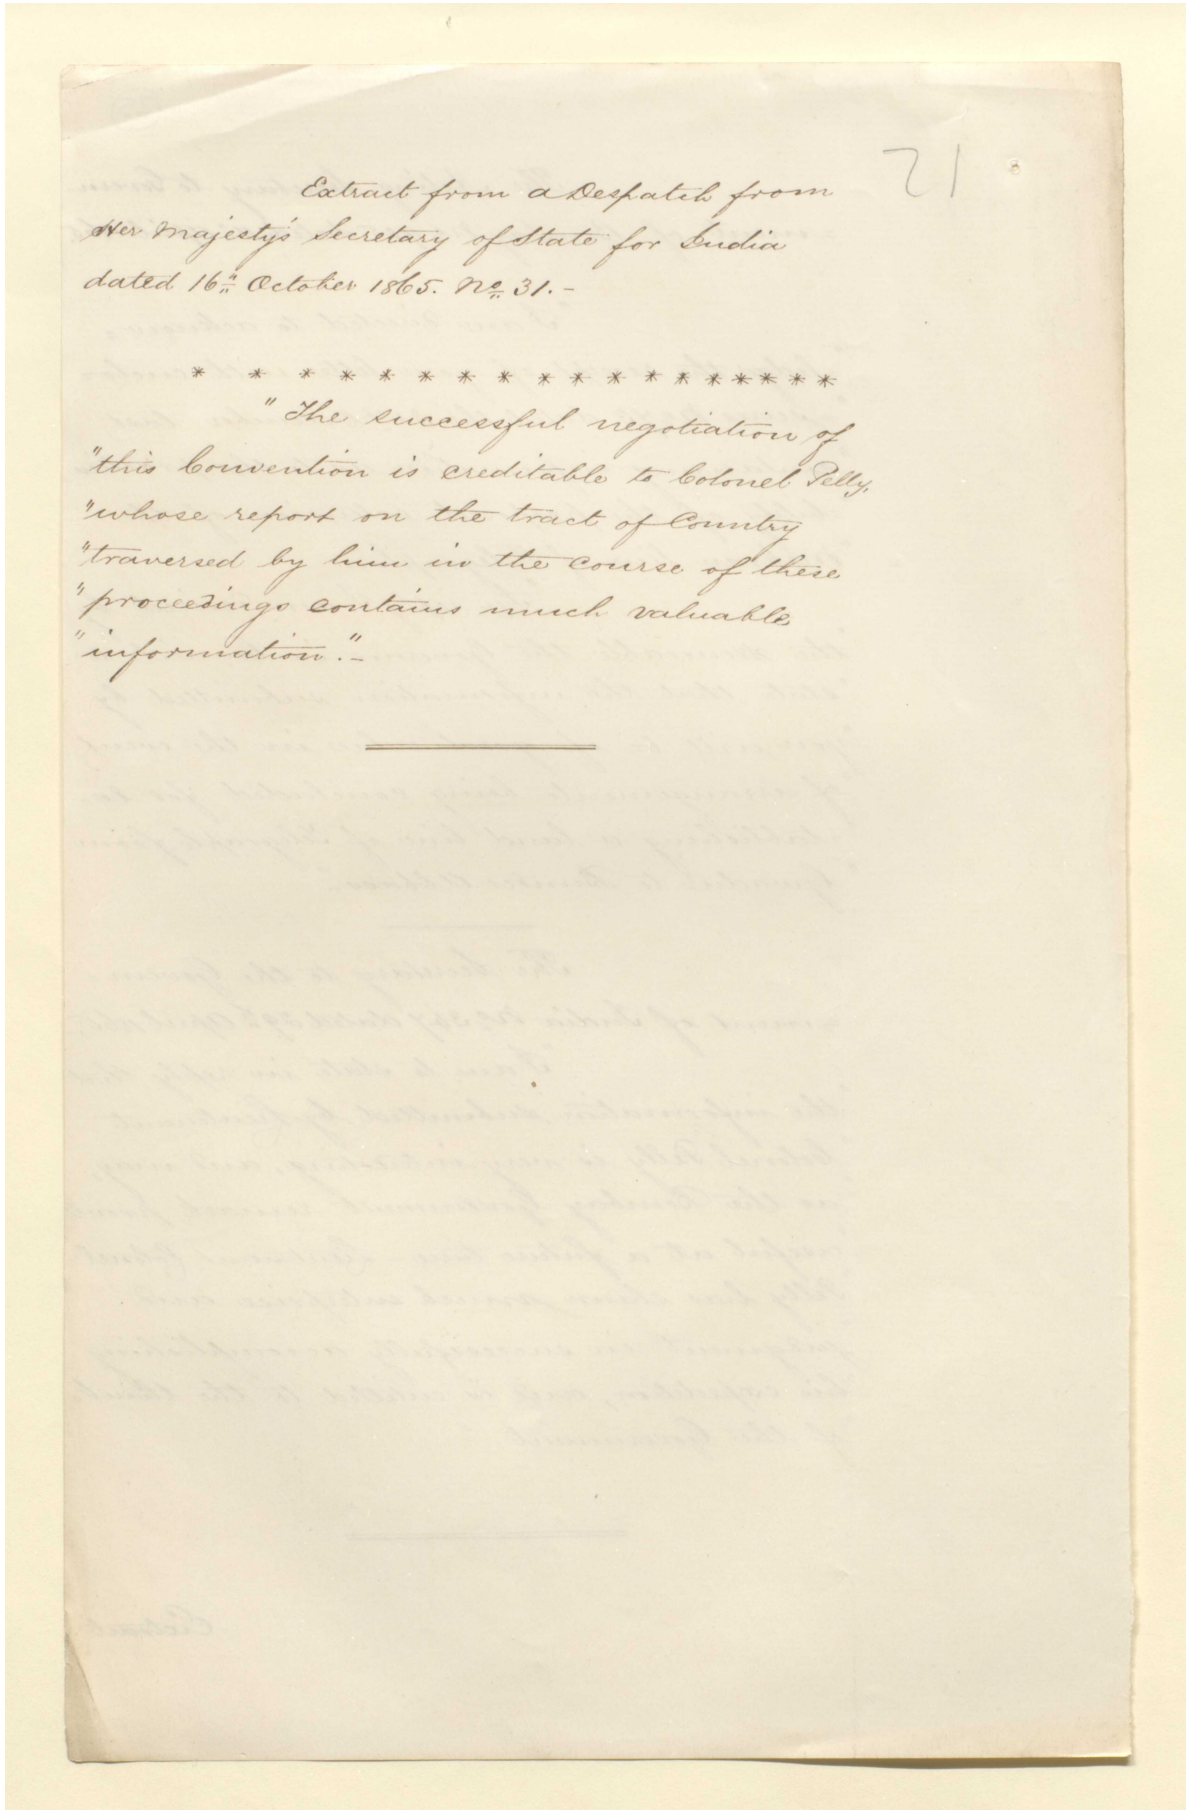 21
Extract from a Despatch from
Her Majesty's Secretary of State for India
dated 16th October 1865. No. 31.-
* * * * * * * * * * * * * * * * * *
"The successful negotiation of
"this Convention is creditable to Colonel Pelly,
"whose report on the tract of Country
"traversed by him in the course of these
"proceedings contains much valuable
"information."-